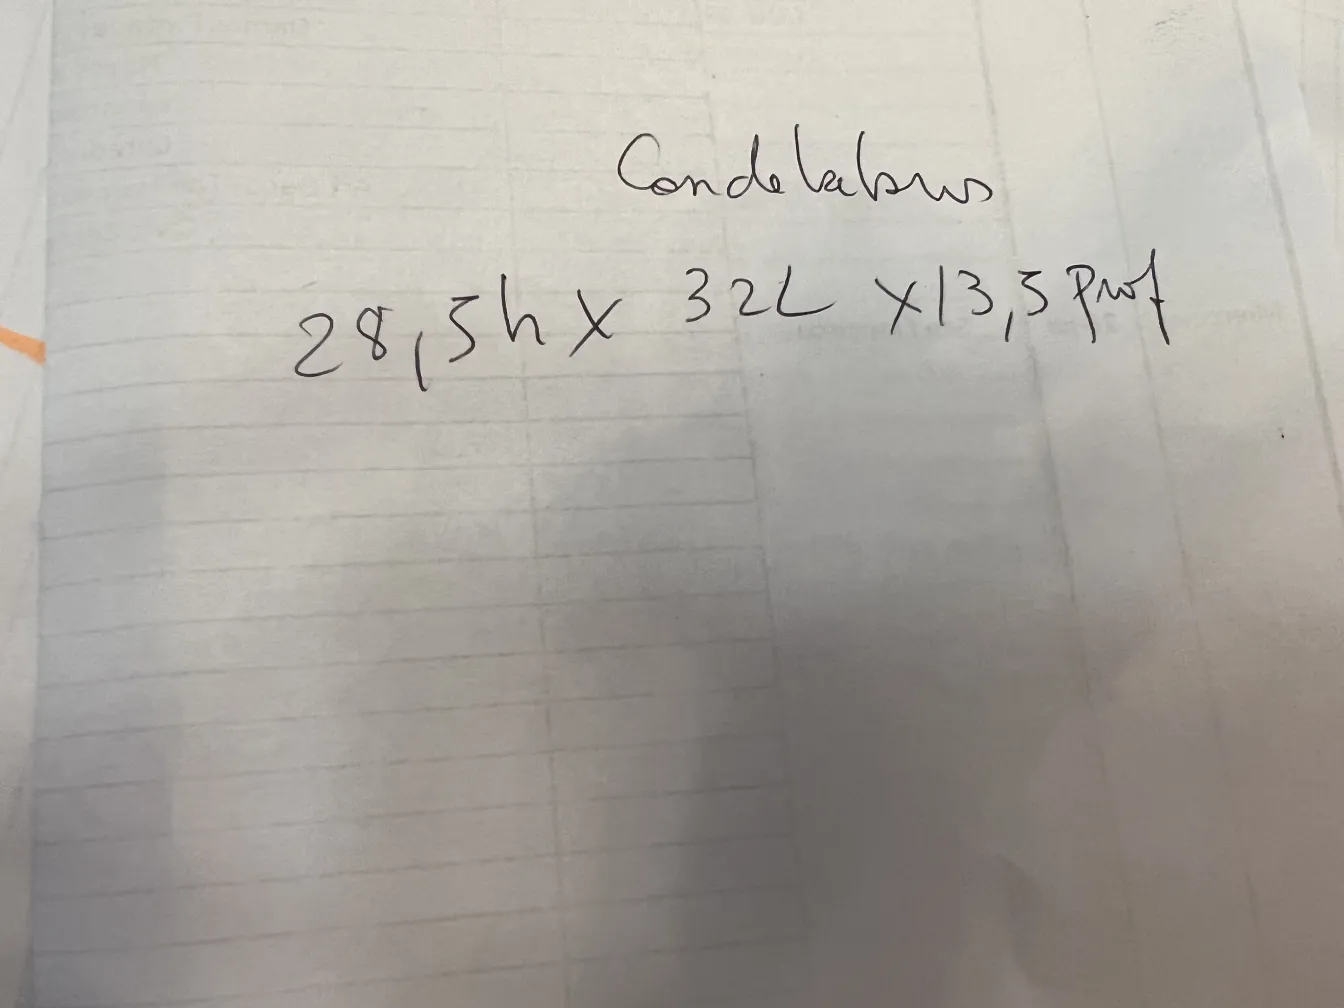 Candelabrus
28,5h x 32L x 13,5 Prof